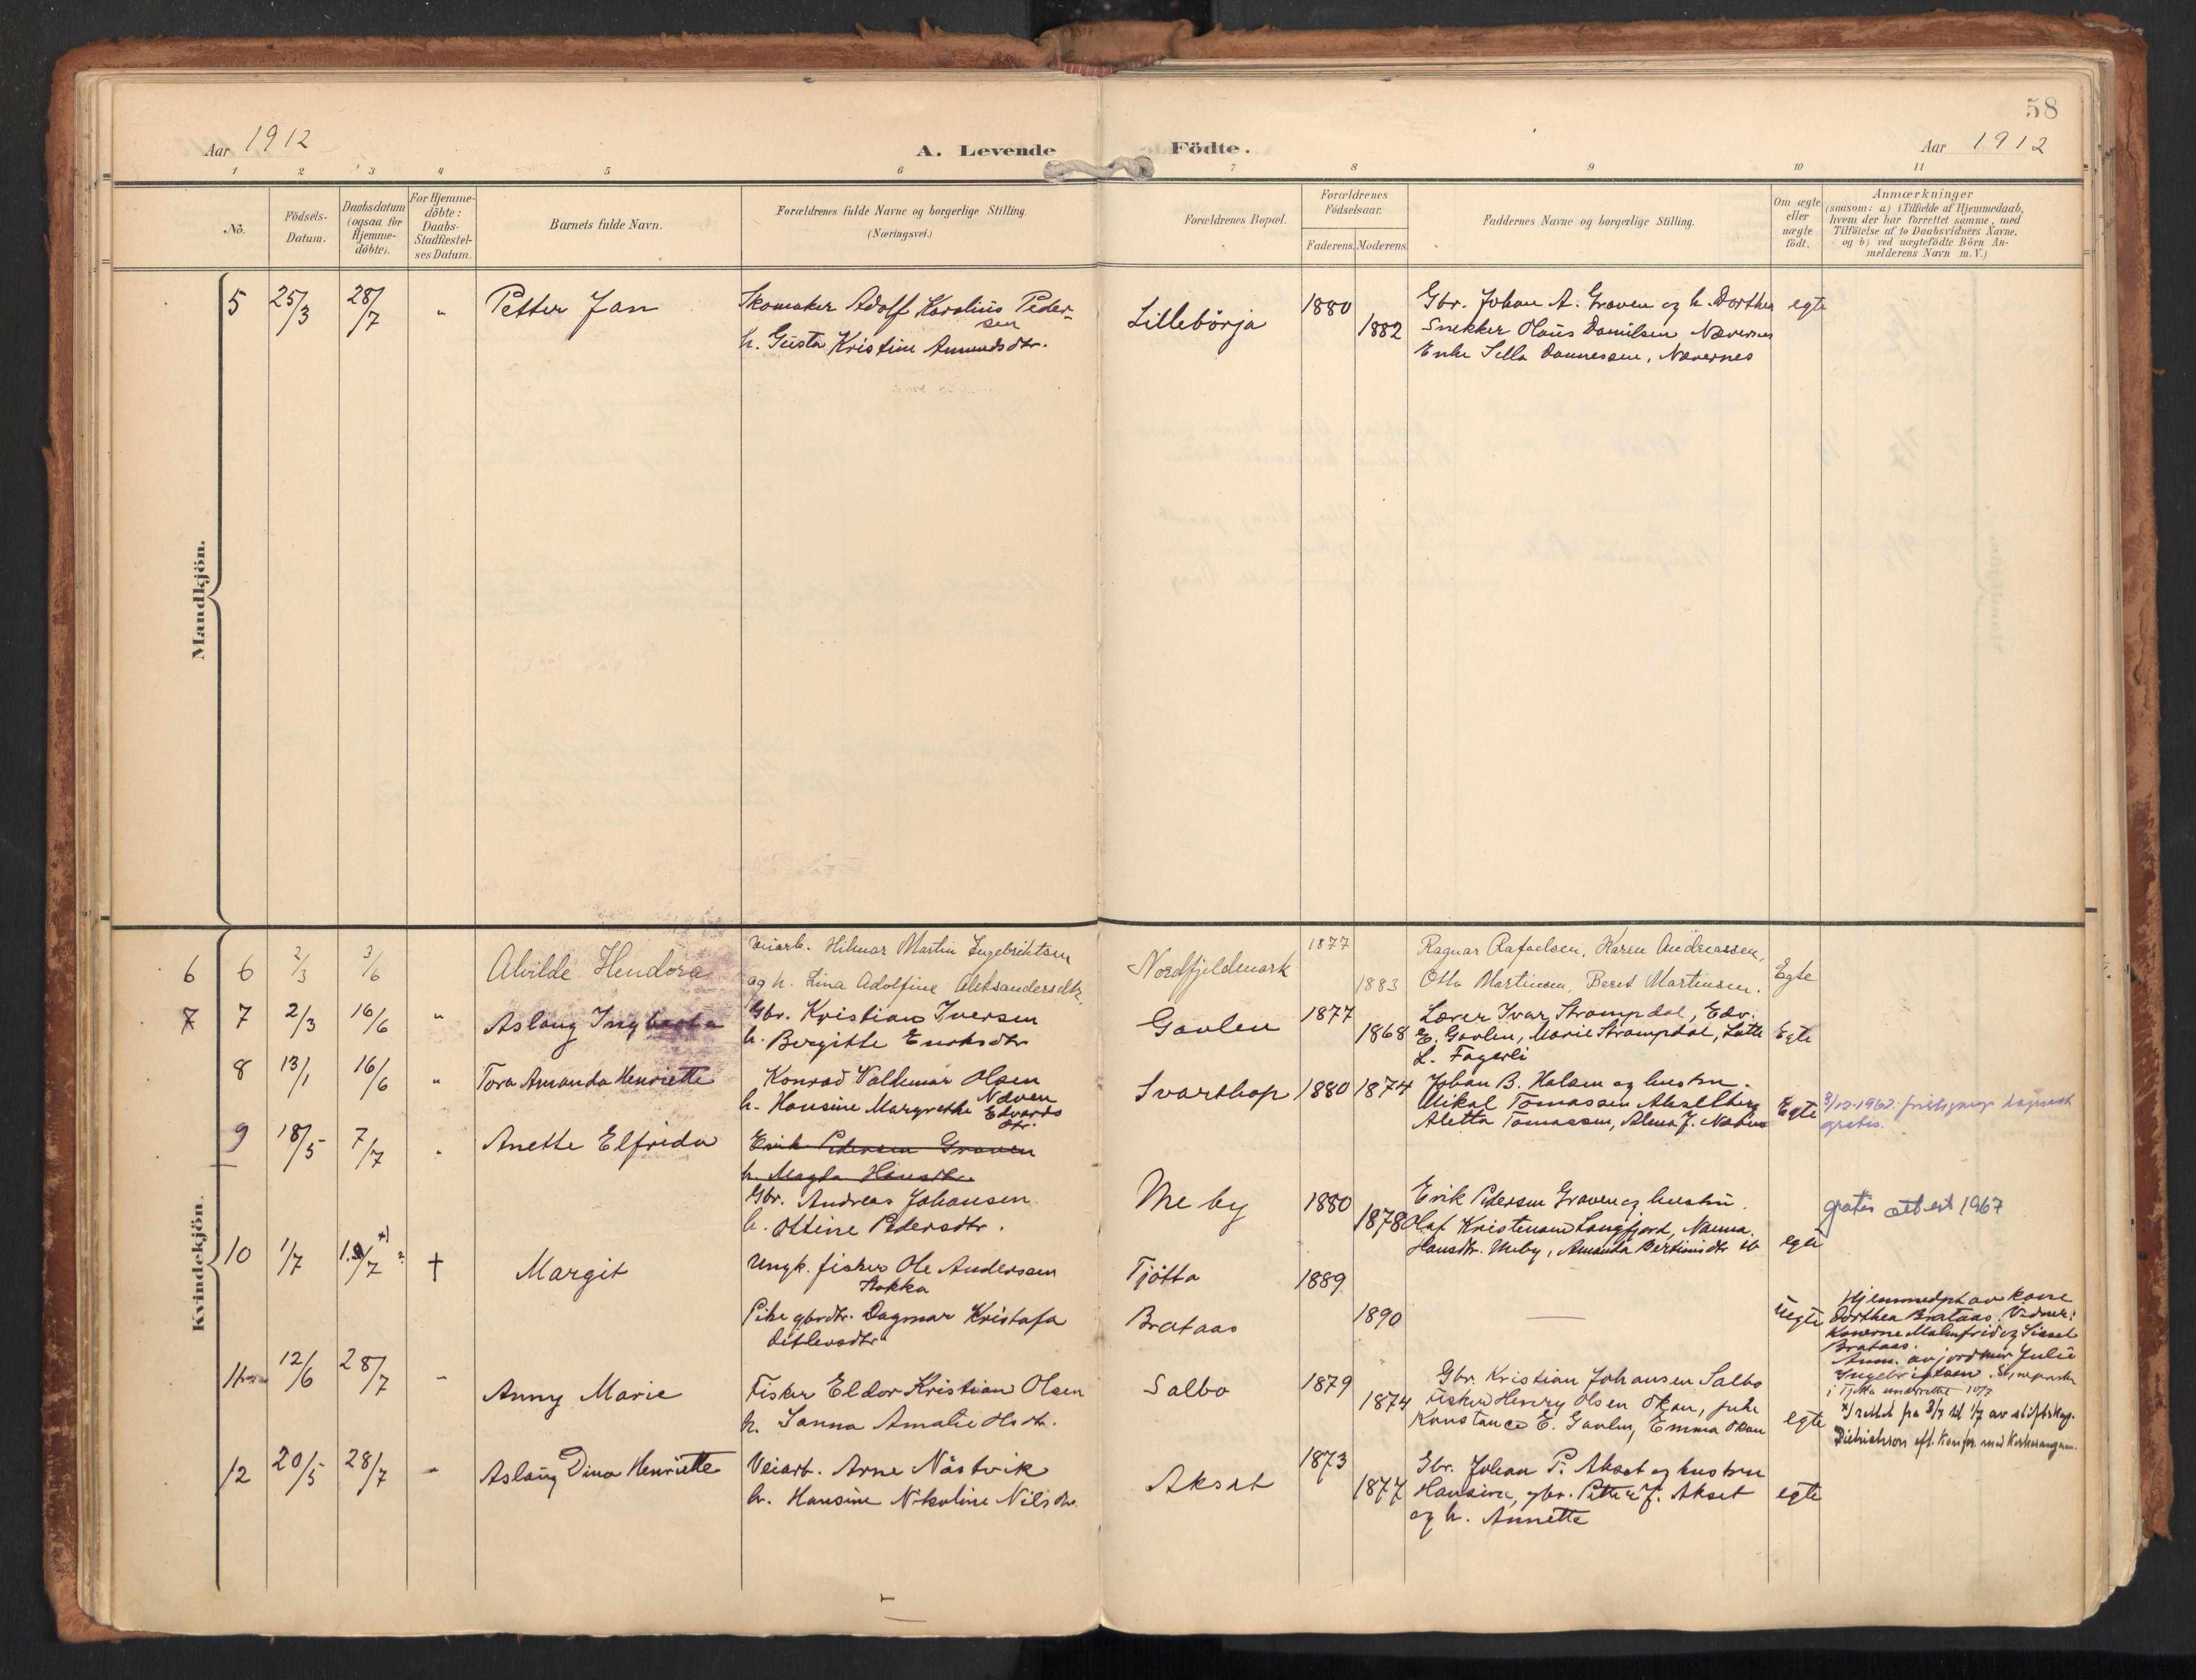 58
Aar 1912
A. Levende Födte.
Aar 1912
1 2 3 4 5 6 7 8 9 10 11
No.
Födsels-Datum.
Daabsdatum (ogsaa for Hjemme-döbte).
For Hjemme-döbte: Daabs-Stadfæstel-ses Datum.
Barnets fulde Navn.
Forældrenes fulde Navne og borgerlige Stilling.
(Næringsvei.)
Forældrenes Bopæl.
Forældrenes Födselsaar.
Faderens. Moderens.
Faddernes Navne og borgerlige Stilling.
Om ægte eller uægte födt.
Anmærkninger
(saasom: a) i Tilfælde af Hjemmedaab,
hvem der har forrettet samme, med
Tilföielse af to Daabsvidners Navne,
og b) ved uægtefödte Börn An-
melderens Navn m.V.)
Mandkjön.
5 25/3 28/7 " Petter Jan
Skomaker Adolf Karolius Peder-
sen
h. Gusta Kristine Amundsdtr.
Lillebörja 1880 1882
Gbr. Johan A. Graven og h. Dorthea
Snekker Olaus Danilsen Nævernes
Enke Silla Dannessen, Nævernes
egte
Kvindekjön.
6 6 2/3 3/6 Alvilde Hendora
Veiarb. Hilmar Martin Ingebriktsen
og h. Lina Adolfine Aleksandersdtr.
Nordfjeldmark 1877 1883
Ragnar Rafaelsen, Karen Andreassen,
Otto Martinsen, Beret Martinsen.
Egte
7 7 2/3 16/6 " Aslaug Ingeborg
Gbr. Kristian Iversen
h. Bergitte Enoksdtr
Gavlen 1877 1868
Lærer Ivar Strompdal, Edv.
E. Gavlen, Marie Strompdal, Lotte
L. Fagerli
Egte
8 13/1 16/6 " Tora Amanda Henriette
Konrad Valdemar Olsen
Næven
h. Hansine Margrethe Edvards
dtr.
Svarthop 1880 1874
Johan B. Halsen og hustru.
Mikal Tomassen
Aletta Tomassen, Alma J.
Egte
8/10-1962: gratis.
9 18/5 7/7 " Anette Elfrida
Erik Pedersen Graven
h. Magda Hansdtr.
Gbr. Andreas Johansen
h. Ottine Pedersdtr.
Meby 1880 1878
Erik Pedersen Graven og hustru.
Olaf Kristensen Langfjord, Nanna
Hansdtr. Meby, Amanda Bertinusdtr
egte
gratis attest 1967
10 1/7 1.9/7 x) ? † Margit
Ungk. fisker Ole Anderssen
Stokka
Pike gbrdtr. Dagmar Kristofa
Ditlevsdtr
Tjötta 1889
Brataas 1890
—
Uegte
Hjemmedöpt av kone
Dorthea Brataas. Vidner:
Konerne Malmfrid og Sissel
Brataas.
Anm. av jordmor Julie
Ingebrigtsen.
i Tjötta underrettet 10/7
x) rettet fra 8/7 til 1/7 av stiftskap.
Dietrichson eft. konfer. med
11 12/6 28/7 " Anny Marie
Fisker Eldor Kristian Olsen
h. Janna Amalie Olsdtr.
Salbo 1879 1874
Gbr. Kristian Johansen Salbo
Fisker Henry Olsen Økan, pike
Konstance E. Gavlen, Emma Økan
egte
12 20/5 28/7 " Aslaug Dina Henriette
Veiarb. Arne Nästvik
h. Hansine Nikoline Nilsdtr.
Akset 1873 1877
Gbr. Johan P. Akset og hustru
Hansine, gbr. Petter J. Akset
og h. Annette
egte